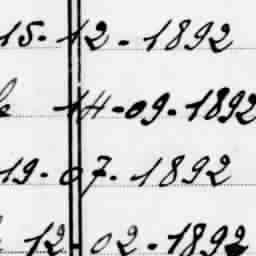 15-12-1892
14-09-1892
19-07-1892
12-02-1892